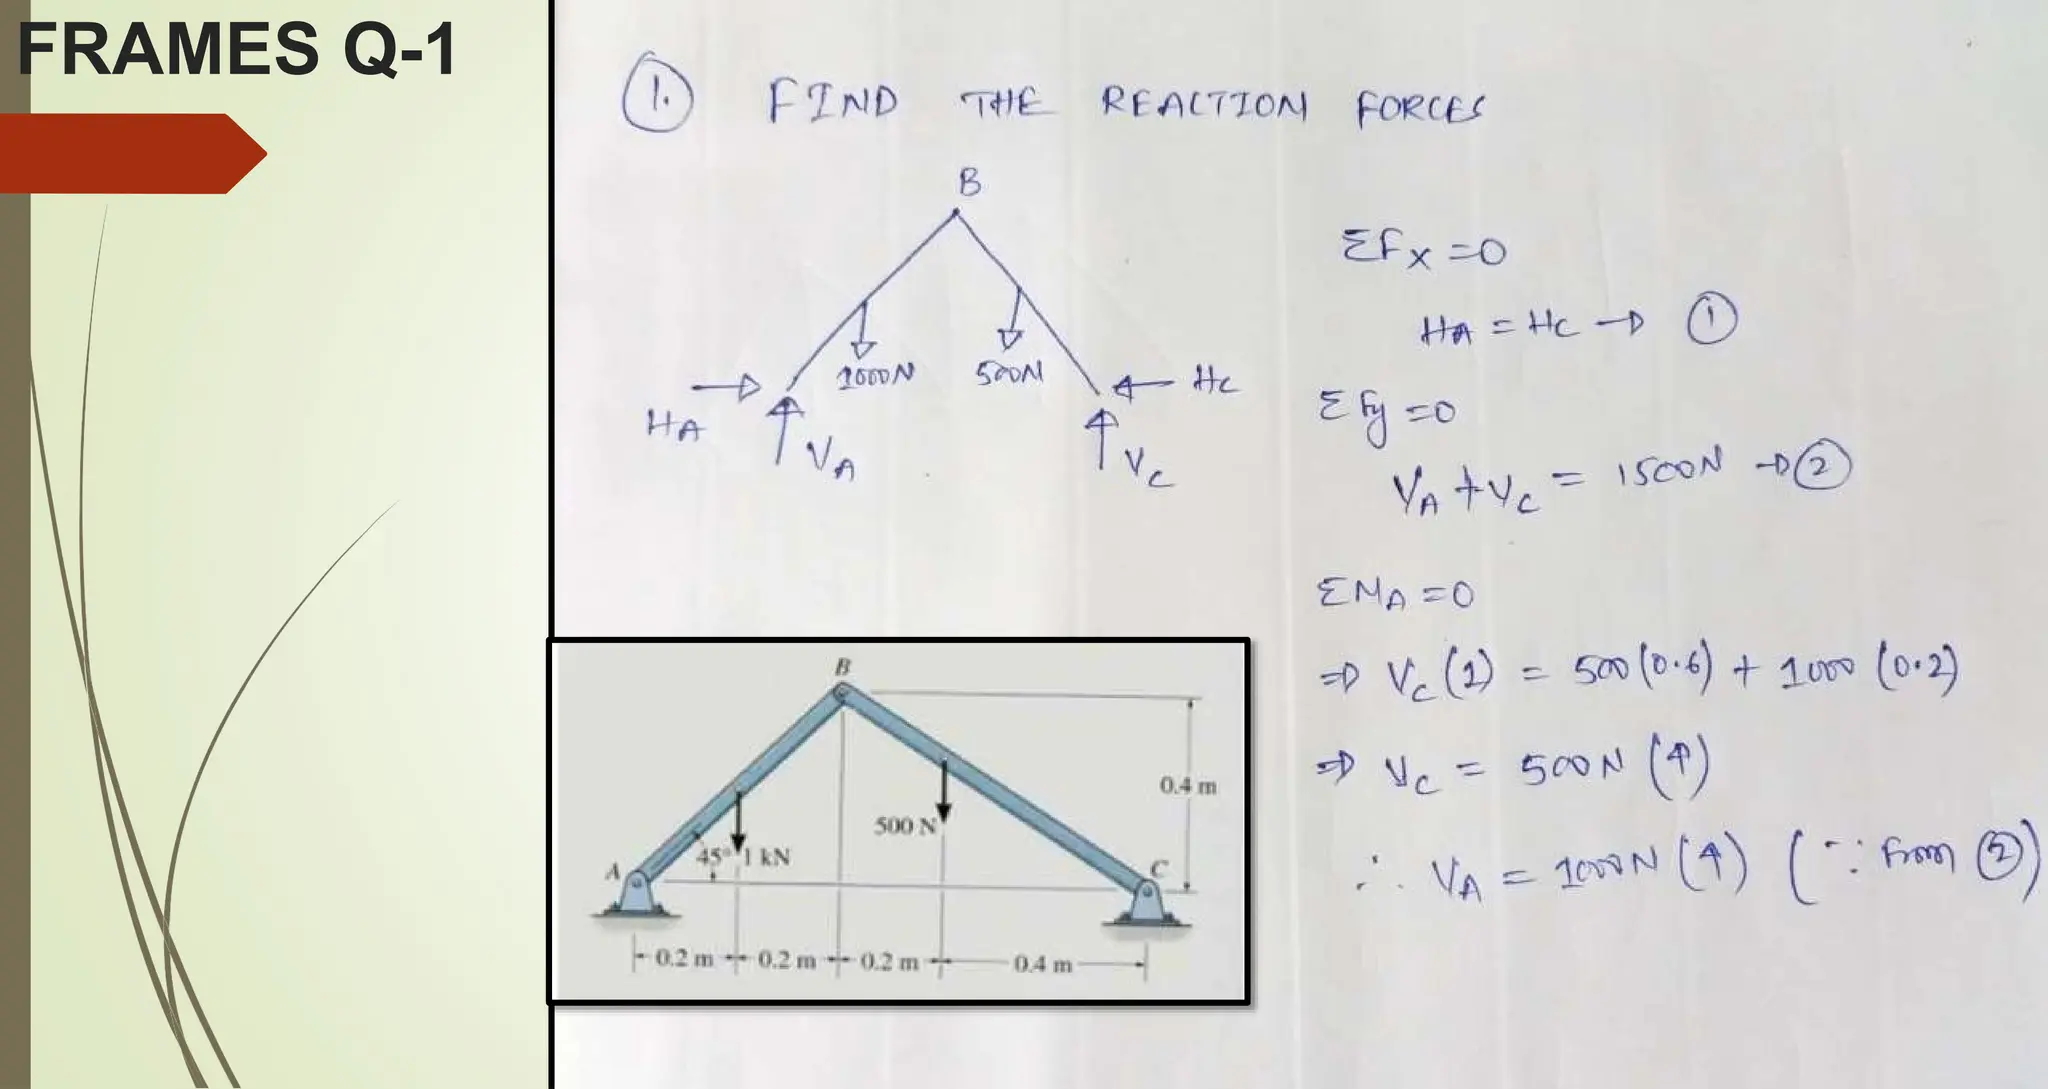 FRAMES Q-1
1. FIND THE REACTION FORCES
B
1000N
500N
HA
VA
HC
VC
ΣFx =0
HA = HC → ①
ΣFy =0
VA + VC = 1500N → ②
ΣMA =0
⇒ VC (1) = 500(0.6) + 1000 (0.2)
⇒ VC = 500N (↑)
∴ VA = 1000N (↑) (∵ From ②)
B
0.4 m
500 N
45° 1 kN
A
C
0.2 m
0.2 m
0.2 m
0.4 m